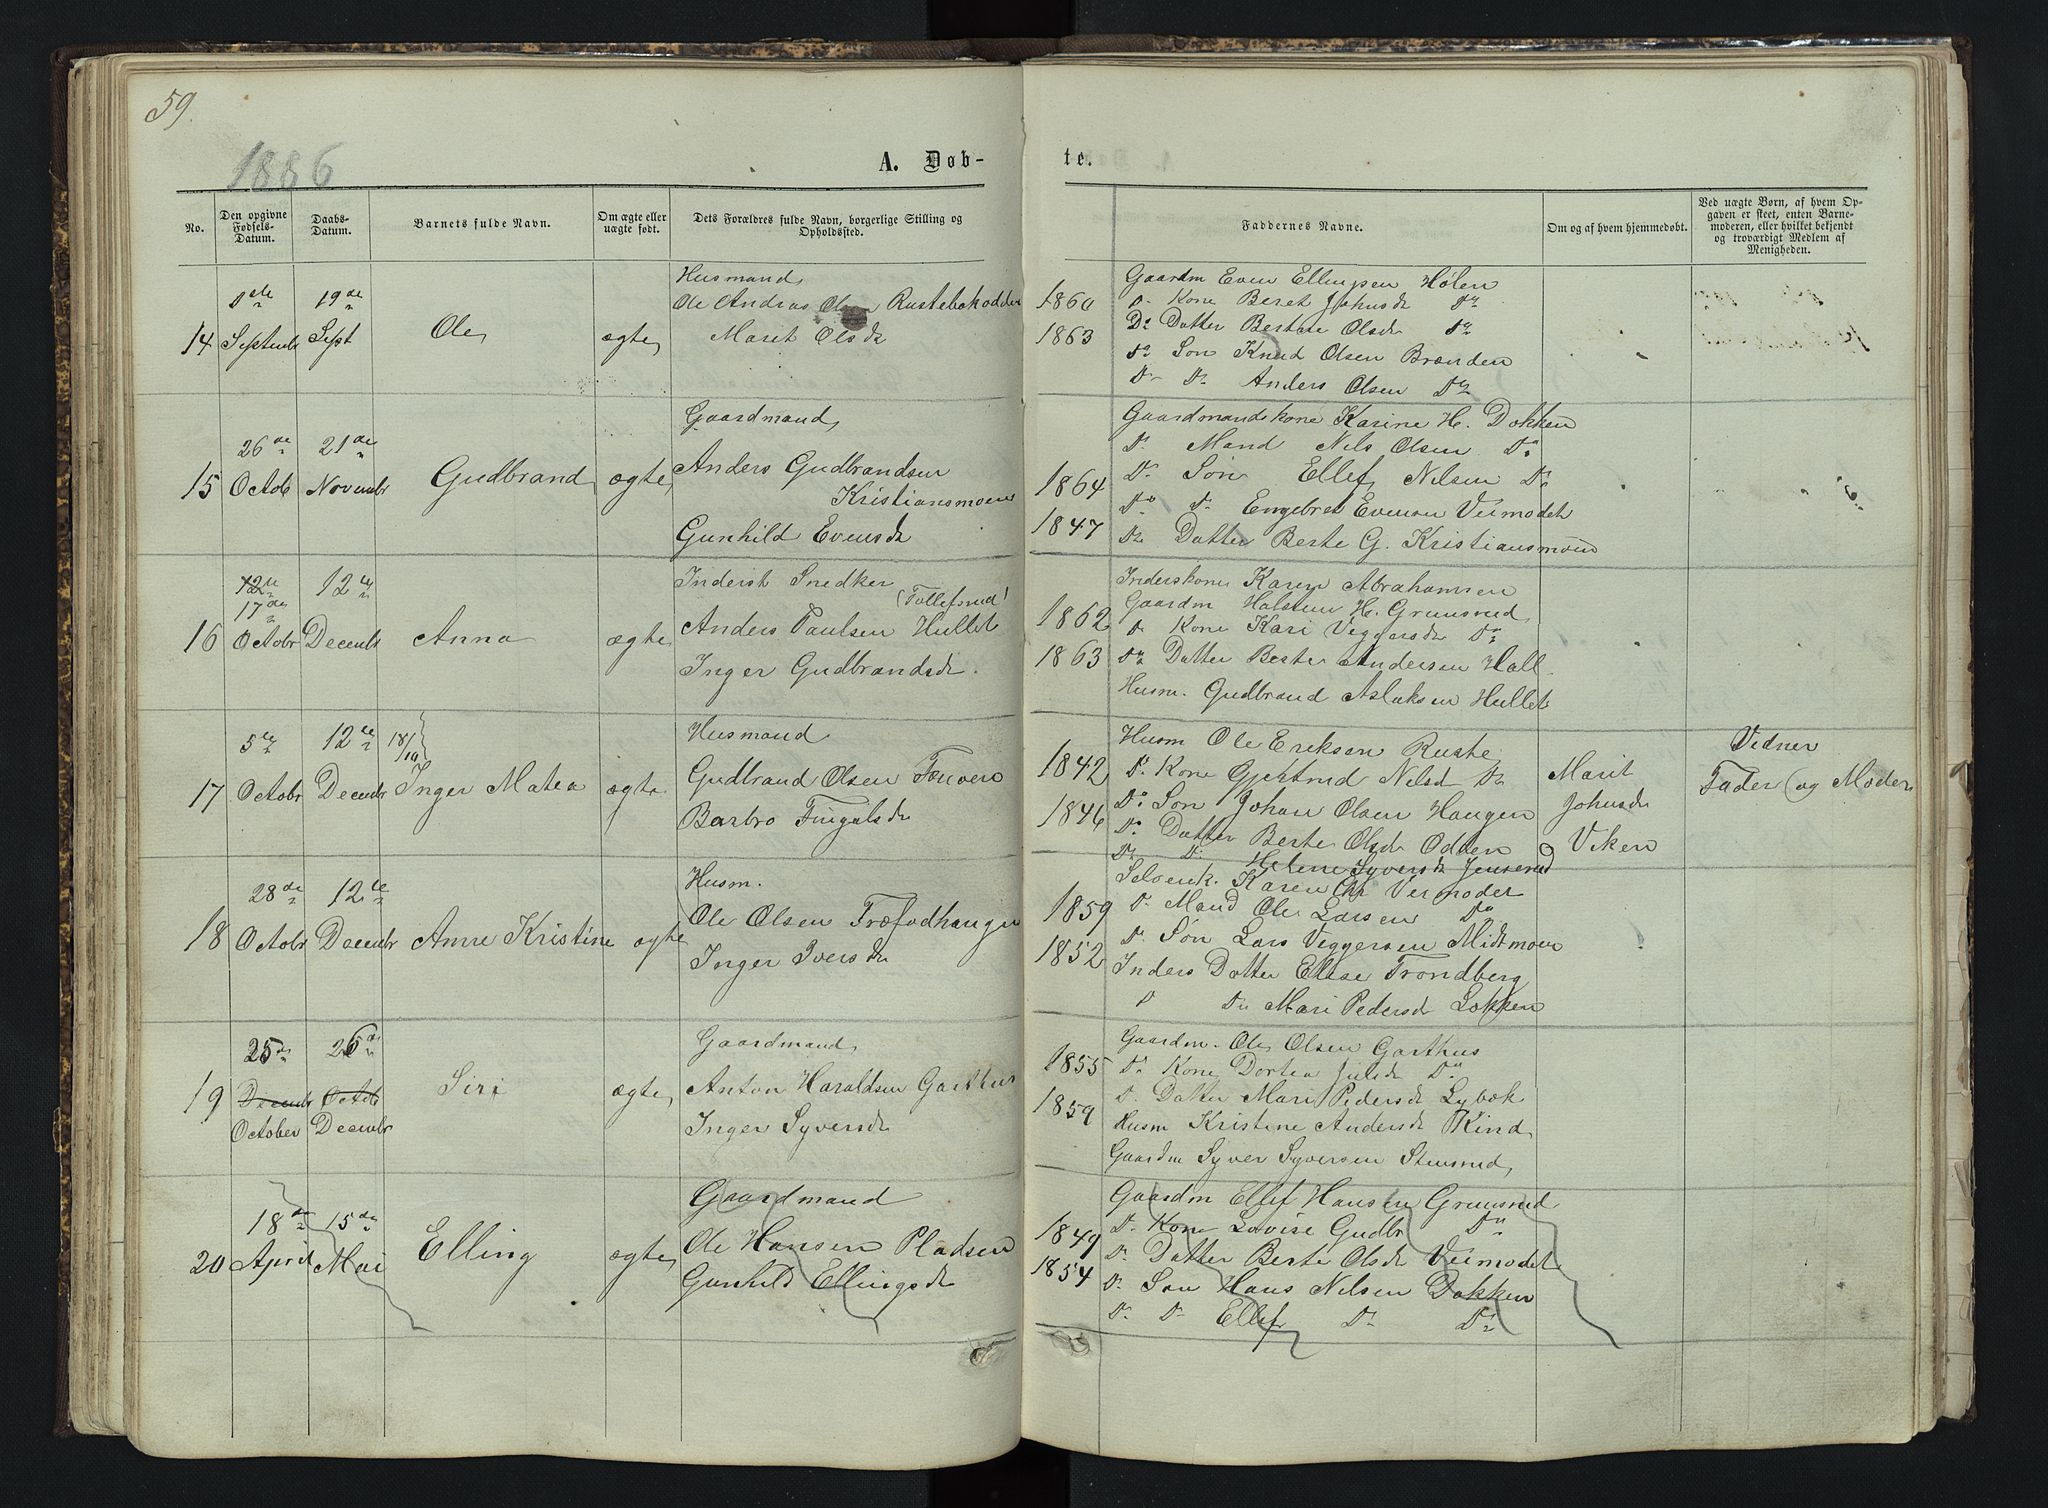 59.
1886
A. Døb-
te.
No.
Den opgivne Fødsels-Datum.
Daabs-Datum.
Barnets fulde Navn.
Om ægte eller uægte født.
Dets Forældres fulde Navn, borgerlige Stilling og Opholdssted.
Faddernes Navne.
Om og af hvem hjemmedøbt.
Ved uægte Børn, af hvem Op-
gaven er skeet, enten Barne-
moderen, eller hvilket bekjendt
og troværdigt Medlem af
Menigheden.
14
Septembr
19de Sept
Ole
ægte
Husmand
Ole Andreas Olsen Rustebakodden
Marit Olsdr
1860
1863
Gaardm Even Ellingsen Hølen
Do Kone Beret Johnsdr Do
Do Datter Berthe Olsdr Do
Do Søn Knud Olsen Brænden
Do Do Anders Olsen Do
15
26de Octob
21de Novembr
Gudbrand
ægte
Gaardmand
Anders Gudbrandsen
Kristiansmoen
Gunhild Evensdr
1864
1847
Gaardmandskone Karine H. Dokken
Do Mand Nils Olsen Do
Do Søn Ellef Nilsen Do
Do Do Engebret Evensen Veimodet
Do Datter Berte G. Kristiansmoen
16
12te
17de
Octobr
12te Decembr
Anna
ægte
Inderst Snedker
(Tollefsrud)
Anders Paulsen Hullet
Inger Gudbrandsdr.
1862
1863
Inderskone Karen Abrahamsen
Gaardm Halsten H. Grimsrud
Do Kone Kari Viggersdr Do
Do Datter Berte Andersen Hall
Husm. Gudbrand Aslaksen Hullet
17
5te Octobr
12te Decembr
18/10
Inger Matea
ægte
Husmand
Gudbrand Olsen
Barbro Fingalsdr
1842
1846
Husm Ole Eriksen Ruste
Do Kone Gjertrud Nilsd Do
Do Søn Johan Olsen Haugen
Do Datter Berte Olsdr Odden
Do Do Helene Syversdr Jensrud
Marit
Johnsdr
Viken
Vidner
Fader og Moder
18
28de Octobr
12te Decembr
Anne Kristine
ægte
Husm.
Ole Olsen Træfodhaugen
Inger Iversdr
1859
1852
Selveik. Karen Chr Veimodet
Do Mand Ole Larsen Do
Do Søn Lars Viggersen Midtmoen
Inders Datter Elise Trondberg
Do Do Mari Pedersdr Løkken
19
25de
Decembr
October
26de
Octob
Decembr
Siri
ægte
Gaardmand
Anton Haraldsen Garthus
Inger Syversdr
1855
1859
Gaardm. Ole Olsen Garthus
Do Kone Dortea Juldr Do
Do Datter Mari Pedersdr Lybæk
Husm Kristine Andersdr Kind
Gaardm Syver Syversen Stensrud
20
18de April
15de Mai
Elling
ægte
Gaardmand
Ole Hansen Pladsen
Gunhild Ellingsdr
1849
1854
Gaardm Ellef Hansen Grimsrud
Do Kone Lovise Gudbr Do
Do Datter Berte Olsdr Veimodet
Do Søn Hans Nilsen Dokken
Do Do Ellef Do Do